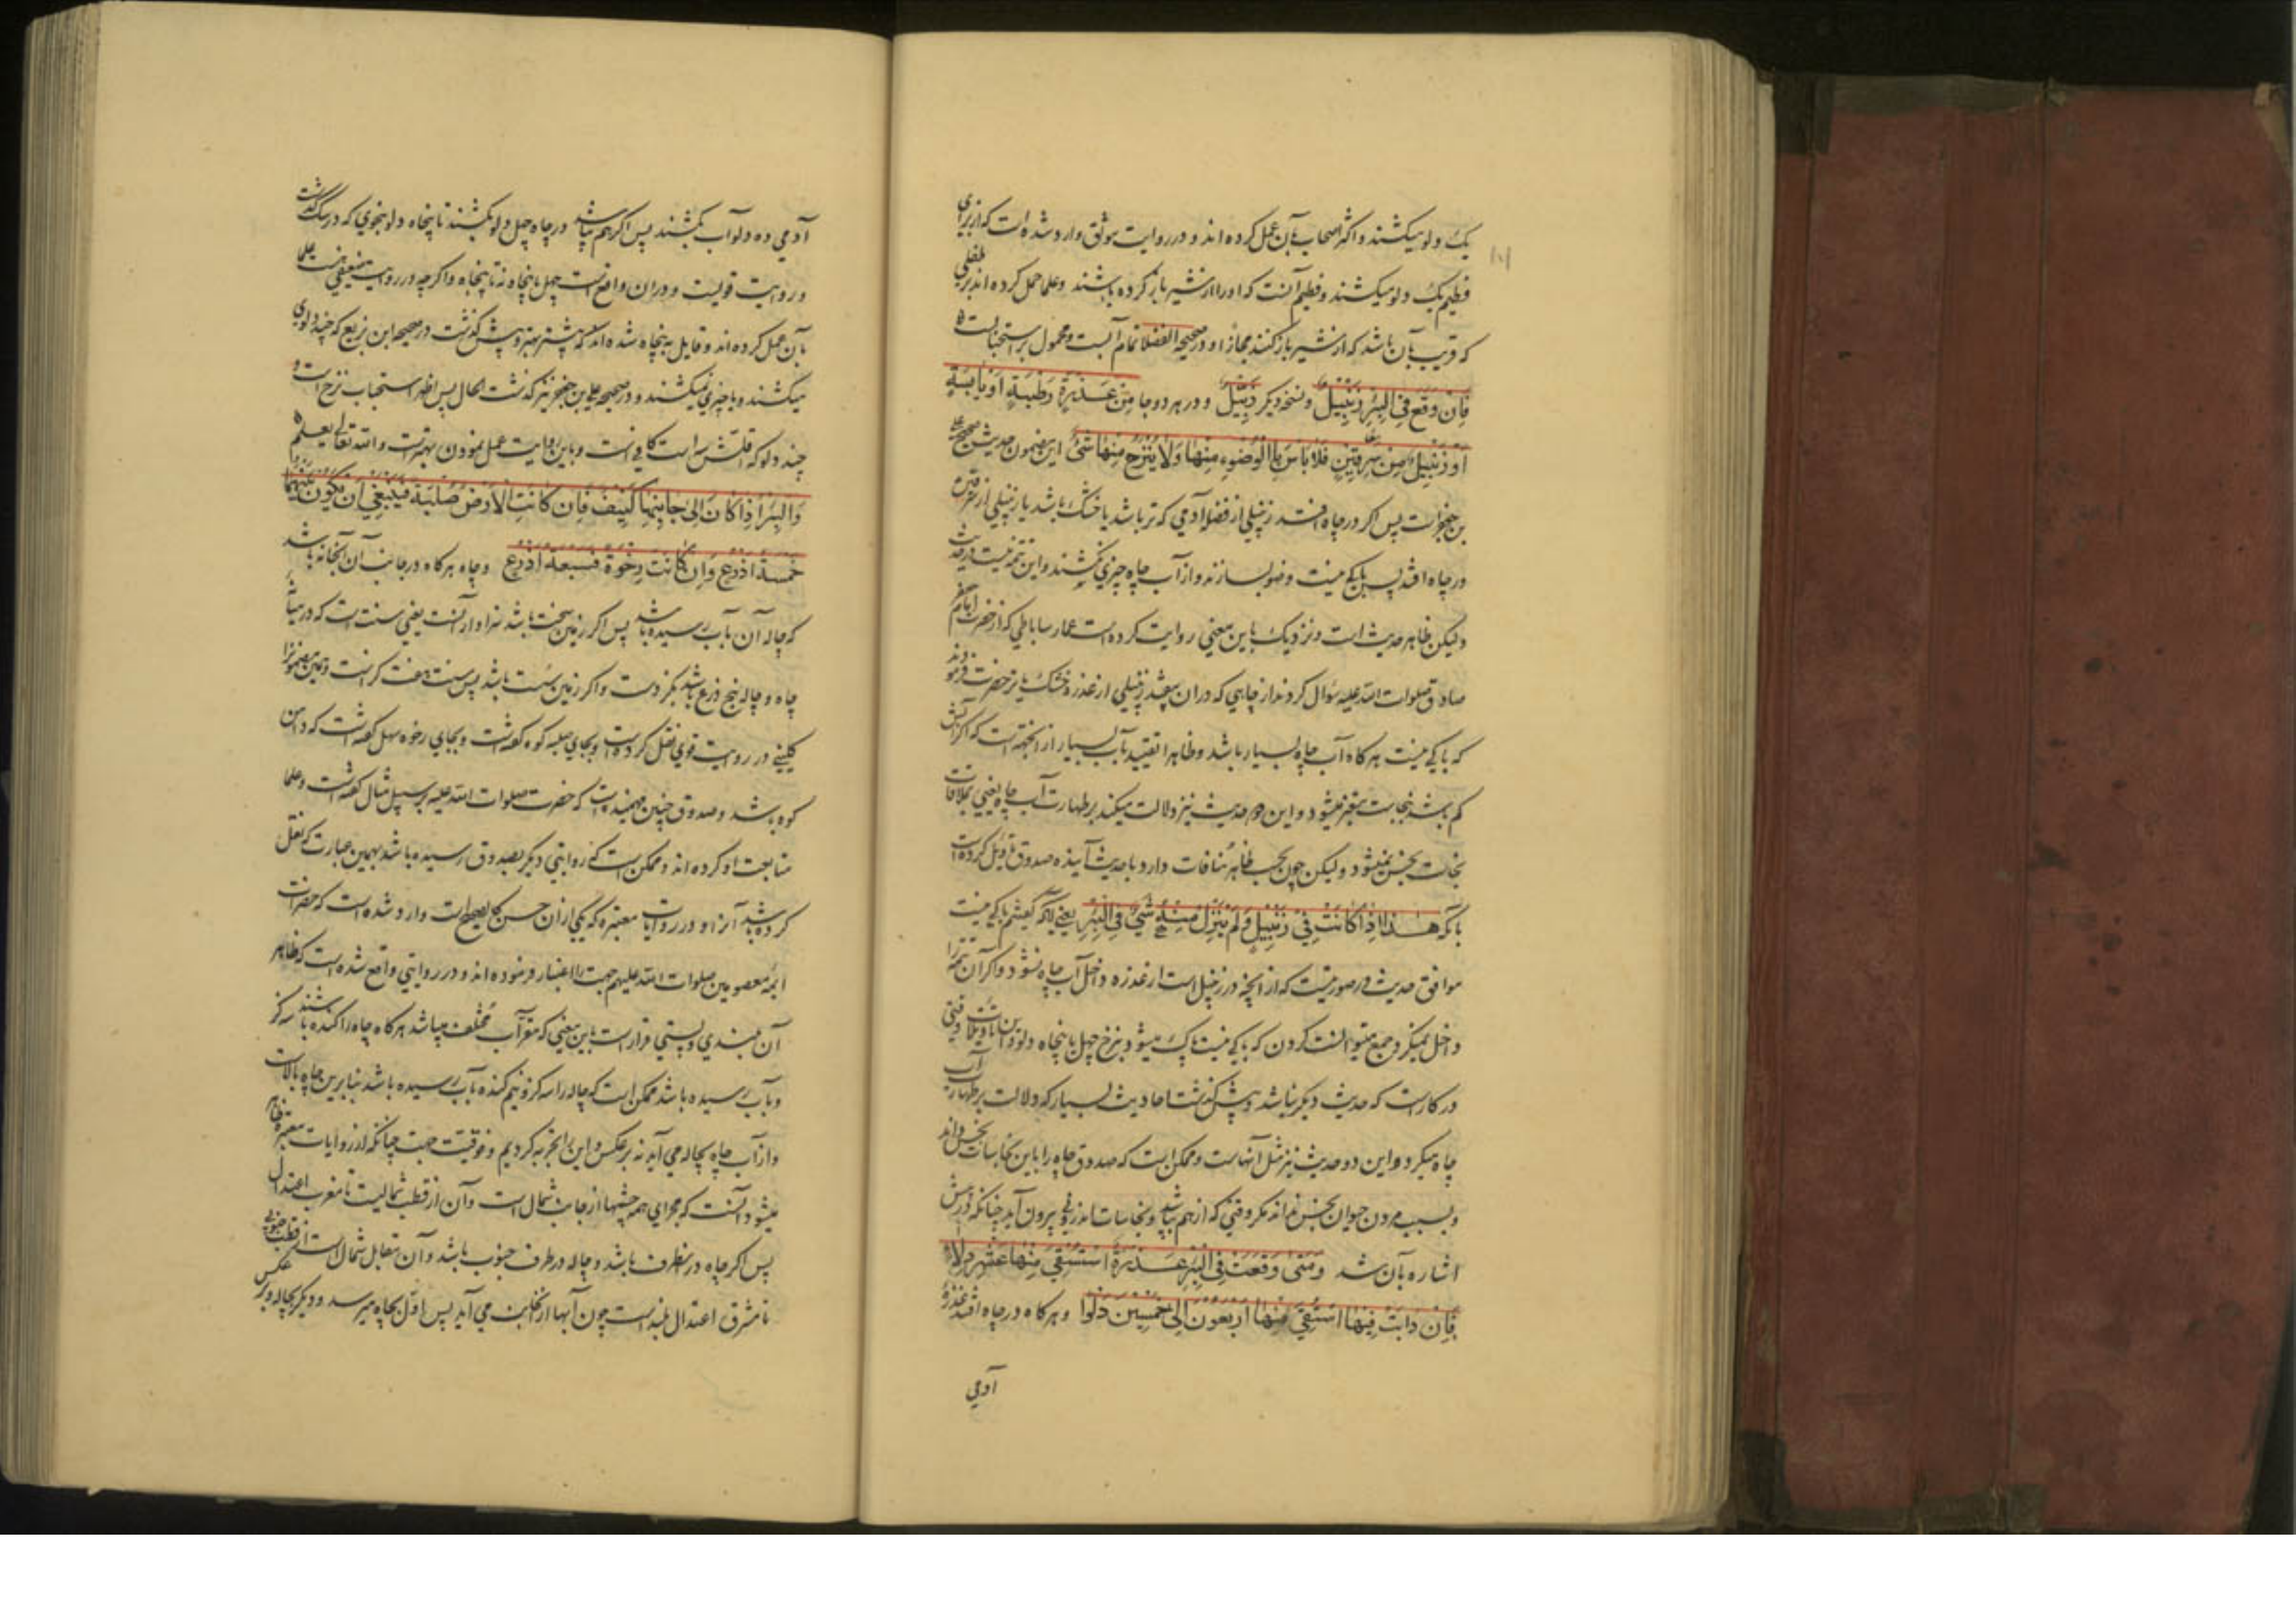 یک دلو میکشند و اکثر اصحاب بآن عمل کرده اند و در روایت موثق وارد شده است که از برای
فطیم یک دلو میکشند و فطیم آنست که او را از شیر باز کرده باشند و علما حمل کرده اند بر طفلی
که قریب بآن باشد که از شیر باز کنند مجازا و در صحیحه الفضلا تمام آبست و محمول بر استحبابست
فَاِنْ وَقَعَ فِی الْبِئْرِ زَنْبِیلٌ و نسخه دیگر زِبِّیلٌ و در هر دو جا مِنْ عَذِرَةٍ رَطْبَةٍ اَوْ یَابِسَةٍ
اَوْ زَنْبِیلٌ مِنْ سِرْقِینٍ فَلَا بَاْسَ بِالْوُضُوءِ مِنْهَا وَلَا یُنْزَحُ مِنْهَا شَیْءٌ این مضمون حدیث صحیح علی
بن جعفر است پس اگر در چاه افتد زنبیلی از فضله آدمی که تر باشد یا خشک باشد یا زنبیلی از سرقین
در چاه افتد پس باکی نیست وضو بسازند و از آب چاه چیزی نکشند و این تتمه نیست در حدیث
ولیکن ظاهر حدیث است و نزدیک باین معنی روایت کرده است عمار ساباطی که از حضرت امام
صادق صلوات الله علیه سؤال کردند از چاهی که در آن بیفتد زنبیلی از عذره خشک یا تر حضرت فرمودند
که باکی نیست هر گاه آب چاه بسیار باشد و ظاهرا تقیید بآب بسیار از آنجهتست که اگر آبش
کم باشد بنجاست متغیر میشود و این دو حدیث نیز دلالت میکند بر طهارت آب چاه یعنی بملاقات
نجاست نجس نمیشود ولیکن چون بحسب ظاهر منافات دارد با حدیث آینده صدوق تاویل کرده است
بآنکه هَذَا اِذَا کَانَتْ فِی زَنْبِیلٍ وَلَمْ یَنْزِلْ مِنْهُ شَیْءٌ فِی الْبِئْرِ یعنی آنکه گفتیم باکی نیست
موافق حدیث در صورتیست که از آنچه در زنبیل است از عذره داخل آب چاه نشود و اگر آن تتمه را
داخل نمیکرد جمع میتوانست کردن که باکی نیست پاک میشود بنزح چهل یا پنجاه دلو و این تاویلات وقتی
در کار است که حدیث دیگر نباشد و پیش گذشت احادیث بسیار که دلالت بر طهارت آب
چاه میکرد و این دو حدیث نیز مثل آنهاست و ممکن است که صدوق چاه را باین نجاسات نجس داند
و بسبب مردن حیوان نجس نداند مگر وقتی که از هم بپاشد و نجاسات اندرونی بیرون آید چنانکه در پیش
اشاره بآن شد وَمَتَی وَقَعَتْ فِی الْبِئْرِ عَذِرَةٌ اُسْتُقِیَ مِنْهَا عَشْرُ دِلَاءٍ
فَاِنْ ذَابَتْ فِیهَا اُسْتُقِیَ مِنْهَا اَرْبَعُونَ اِلَی خَمْسِینَ دَلْوًا و هر گاه در چاه افتد عذره
آدمی
آدمی ده دلو آب بکشند پس اگر از هم بپاشد در چاه چهل دلو بکشند تا پنجاه دلو بنحوی که در سگ گذشت
و روایت قویست و در آن واقع است چهل یا پنجاه نه تا پنجاه و اگر چه در روایت ضعیفی هست علما
بآن عمل کرده اند و قایل به پنجاه شده اند که بیشتر بهتر و پیش گذشت در صحیحه ابن بزیع که چند دلوی
میکشند و یا چیزی نمیکشند و در صحیحه علی بن جعفر نیز گذشت بهر حال پس اظهر استحباب نزح است و
چند دلو که اقلش سه است کافی است و باین روایت عمل نمودن بهتر است والله تعالی یعلم
وَالْبِئْرُ اِذَا کَانَ اِلَی جَانِبِهَا کَنِیفٌ فَاِنْ کَانَتِ الْاَرْضُ صُلْبَةً فَیَنْبَغِی اَنْ یَکُونَ بَیْنَهُمَا
خَمْسَةُ اَذْرُعٍ وَاِنْ کَانَتْ رِخْوَةً فَسَبْعَةُ اَذْرُعٍ و چاه هر گاه در جانب آن آبخانه باشد
که چاله آن بآب رسیده باشد پس اگر زمین سخت باشد سزاوار آنست یعنی سنت است که در میان
چاه و چاله پنج ذرع باشد بگز دست و اگر زمین سست باشد پس سنت هفت گز است و همین مضمونرا
کلینی در روایت قوی نقل کرده است و بجای صلبه کوه گفته است و بجای رخوه سهل گفته است که دامن
کوه باشد و صدوق چنین فهمیده است که حضرت صلوات الله علیه بر سبیل مثال گفته است و علما
متابعت او کرده اند و ممکن است که روایتی دیگر بصدوق رسیده باشد بهمین عبارت که نقل
کرده باشد آنرا و در روایات معتبره که یکی از آن حسن کالصحیح است وارد شده است که حضرات
ایمه معصومین صلوات الله علیهم جهت را اعتبار فرموده اند و در روایتی واقع شده است که ظاهر
آن بلندی و پستی قرار است باین معنی که مقر آب مختلف میباشد هر گاه چاه را کنده باشند سه گز
و بآب رسیده باشد ممکن است که چاله را سه گز و نیم کنده بآب رسیده باشد بنابرین چاه بالاست
و از آب چاه بچاله می آید نه بر عکس و این را تجربه کردیم و فوقیت جهت چنانکه از روایات معتبره ظاهر
میشود آنست که مجرای همه چشمها از جانب شمال است و آن از قطب شمالیست تا مغرب اعتدال
پس اگر چاه در آنطرف باشد و چاله در طرف جنوب باشد و آن مقابل شمال است از قطب جنوبی
تا مشرق اعتدال بلند است چون آبها از آنجانب می آید پس اول بچاه میرسد و دیگر بچاله و بر عکس